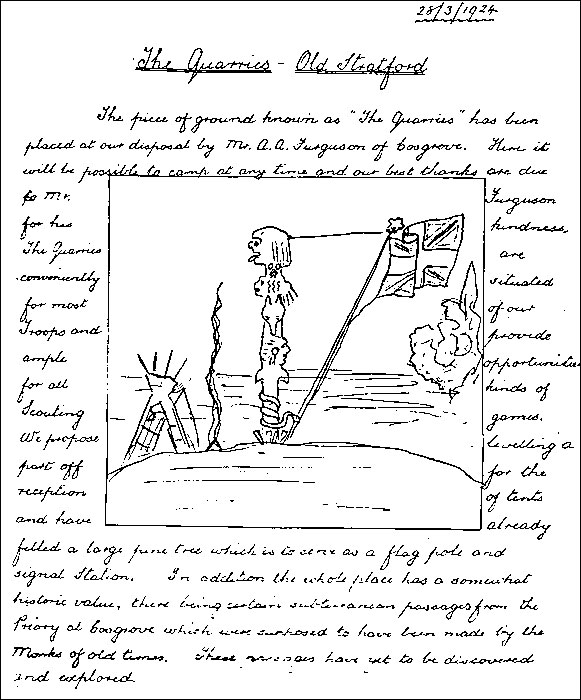 28/3/1924
The Quarries - Old Stratford
The piece of ground known as "The Quarries" has been
placed at our disposal by Mr. A.A. Furguson of Cosgrove. Here it
will be possible to camp at any time and our best thanks are due
to Mr. Furguson
for his kindness,
The Quarries are
conveniently situated
for most of our
Troops and provide
ample opportunities
for all kinds of
Scouting games.
We propose levelling a
part off for the
reception of tents
and have already
felled a large pine tree which is to serve as a flag pole and
signal Station. In addition the whole place has a somewhat
historic value, there being certain subterranean passages from the
Priory at Cosgrove which were supposed to have been made by the
Monks of old times. These passages have yet to be discovered
and explored